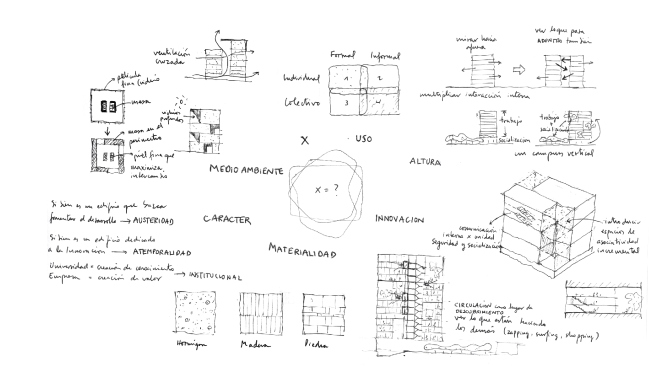 ventilación
cruzada
película
fina (vidrio)
masa
masa en el
perímetro
piel fina que
maximiza
intercambio
vanos
profundos
Formal Informal
Individual 1 2
Colectivo 3 4
X USO
mirar hacia
afuera
ver lo que pasa
ADENTRO también
multiplicar interacción interna
trabajo
socialización
trabajo
social
un campus vertical
MEDIO AMBIENTE
ALTURA
X = ?
CARACTER
INNOVACION
MATERIALIDAD
Si bien es un edificio que busca
fomentar el desarrollo → AUSTERIDAD
Si bien es un edificio dedicado
a la Innovación → ATEMPORALIDAD
Universidad = creación de conocimiento
Empresa = creación de valor → INSTITUCIONAL
comunicación
interna x unidad
Seguridad y socialización
introducir
espacios de
asociatividad
incremental
CIRCULACION como lugar de
DESCUBRIMIENTO
ver lo que están haciendo
los demás (zapping, surfing, shopping)
Hormigón Madera Piedra